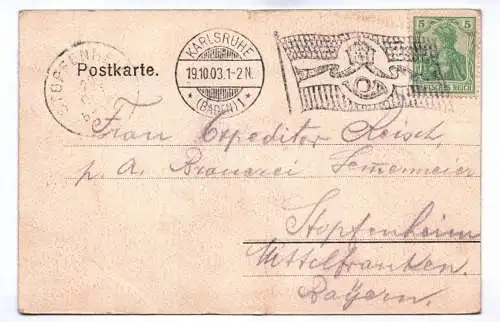 KARLSRUHE
19.10.03.1-2N.
* (BADEN) 1 *
5 5
DEUTSCHES REICH
STOPFENHEIM
Postkarte.
Frau Expeditor Reisch,
p. A. Brauerei
Stopfenheim
Mittelfranken.
Bayern.